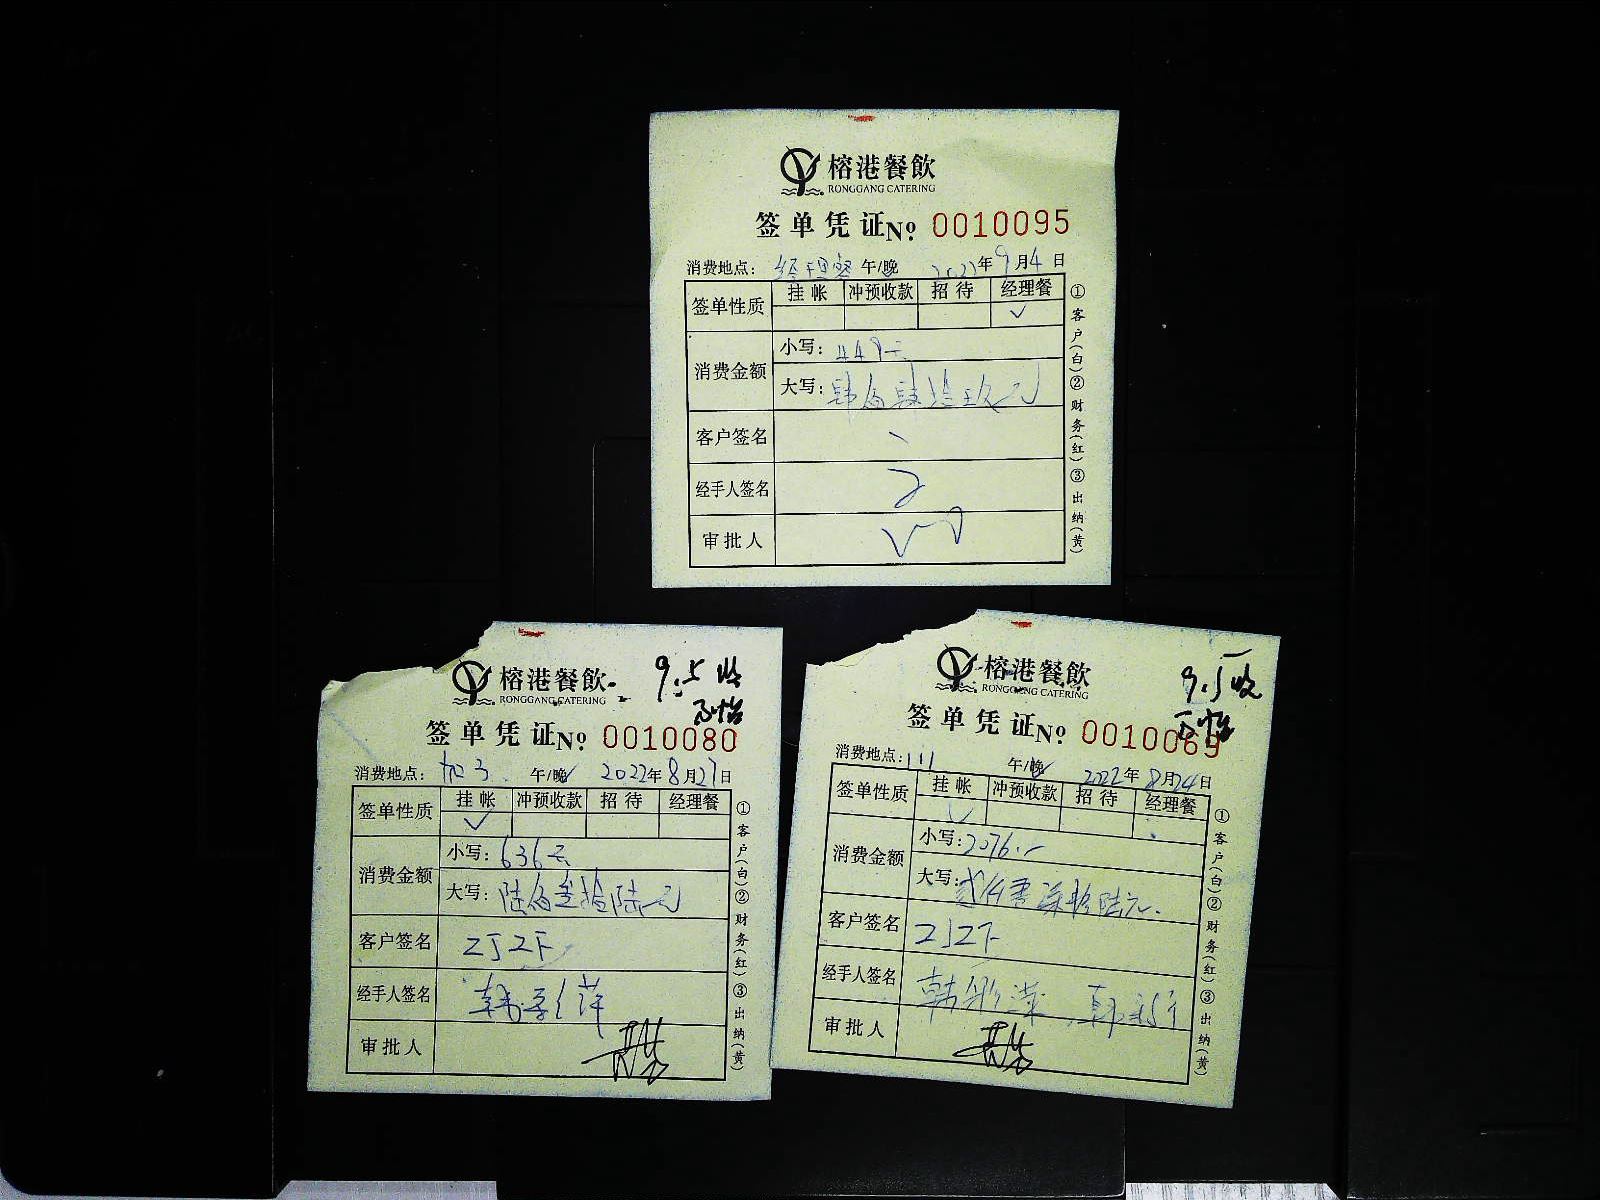 榕港餐飲
RONGGANG CATERING
签单凭证No. 0010095
消费地点: 经理餐 午/晚 2022年9月4日
签单性质 挂帐 冲预收款 招待 经理餐
✓
消费金额 小写: 449元
大写: 肆佰肆拾玖元
客户签名
经手人签名
审批人
①客户(白)②财务(红)③出纳(黄)
榕港餐飲
RONGGANG CATERING
9.5收
签单凭证No. 0010080
消费地点: 午/晚 2022年8月27日
签单性质 挂帐 冲预收款 招待 经理餐
✓
消费金额 小写: 636元
大写: 陆佰叁拾陆元
客户签名 ZJZF
经手人签名 韩
审批人
①客户(白)②财务(红)③出纳(黄)
榕港餐飲
RONGGANG CATERING
9.5收
签单凭证No. 0010069
消费地点: 111 午/晚 2022年8月24日
签单性质 挂帐 冲预收款 招待 经理餐
✓
消费金额 小写: 2076.-
大写: 贰仟零柒拾陆元.
客户签名 ZJZF
经手人签名 韩
审批人
①客户(白)②财务(红)③出纳(黄)